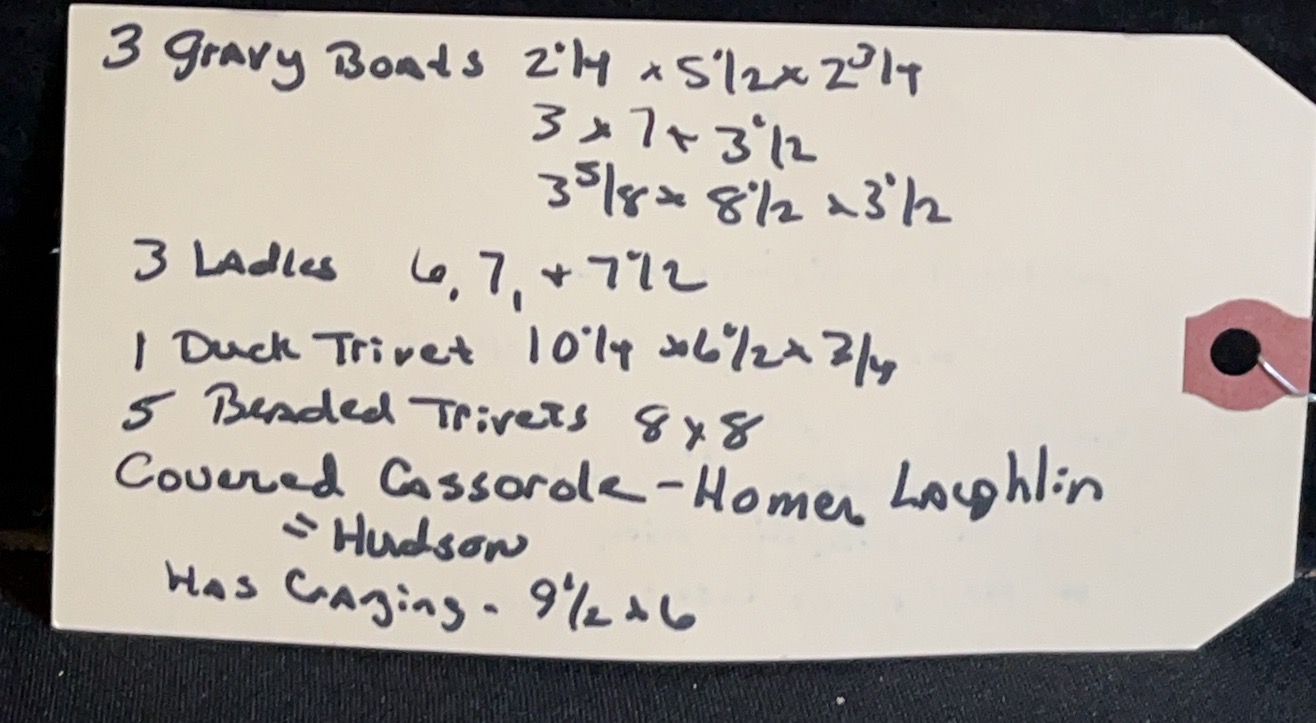 3 Gravy Boats 2 1/4 x 5 1/2 x 2 3/4
3 x 7 x 3 1/2
3 5/8 x 8 1/2 x 3 1/2
3 Ladles 6, 7, + 7 1/2
1 Duck Trivet 10 1/4 x 6 1/2 x 3/4
5 Beaded Trivets 8 x 8
Covered Cassorole - Homer Laughlin
= Hudson
Has Crazing - 9 1/2 x 6